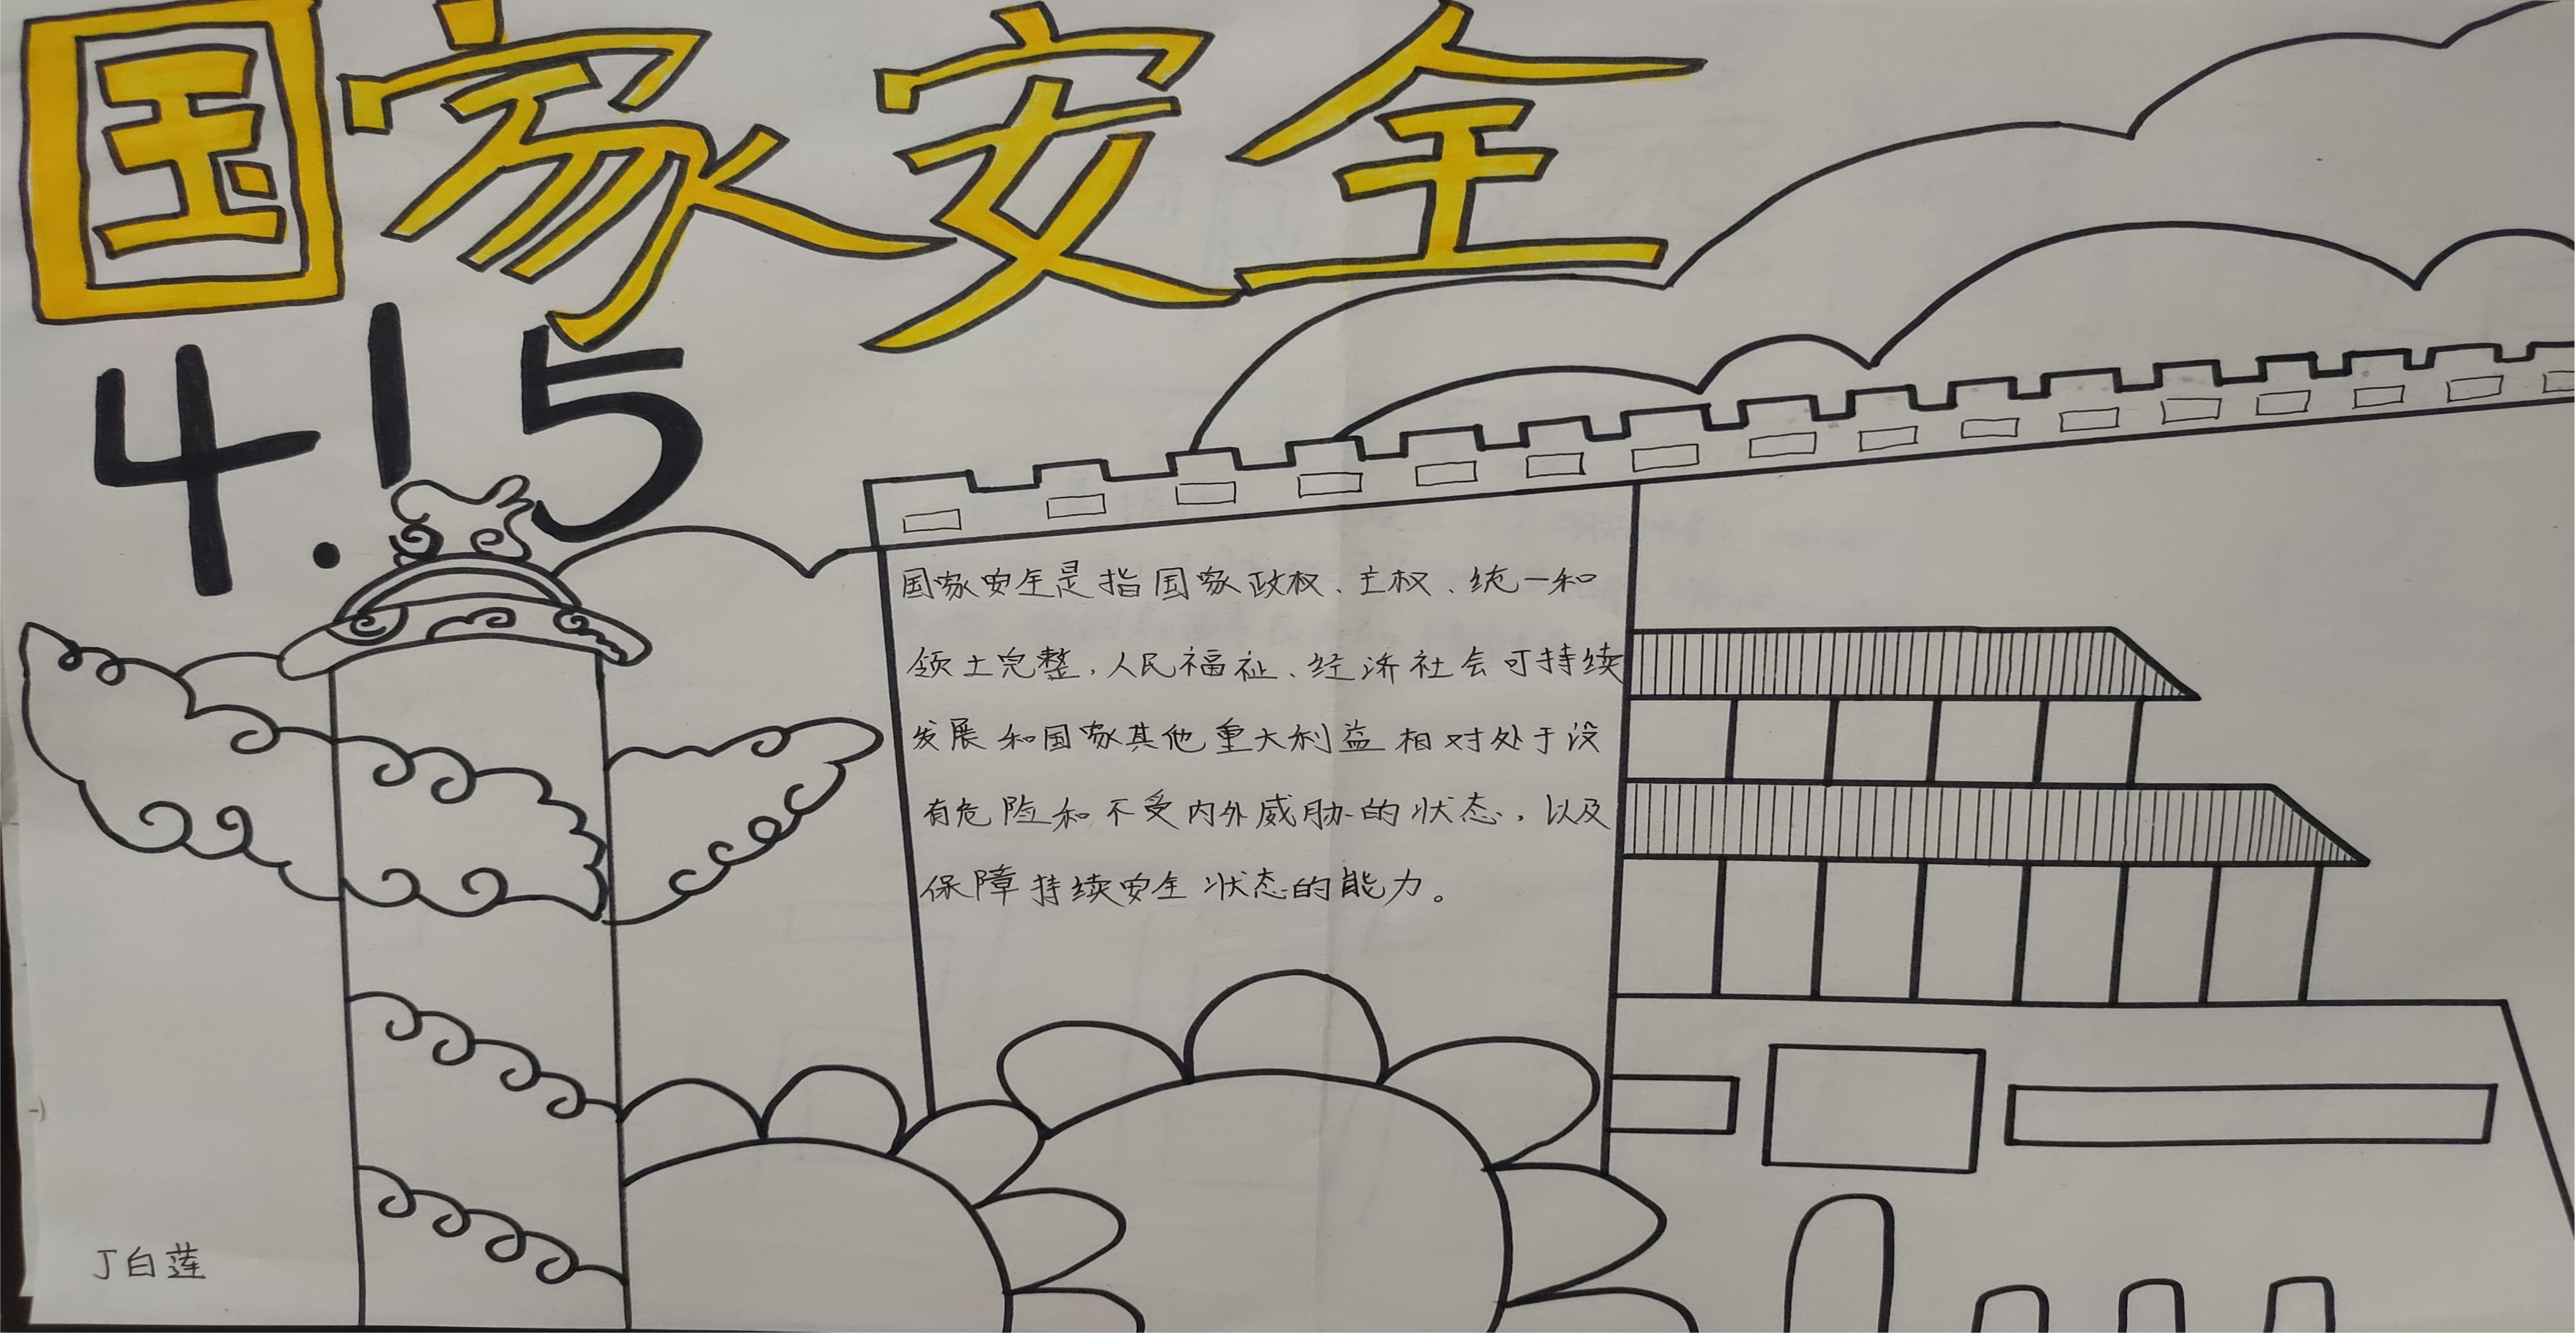 国家安全
4.15
国家安全是指国家政权、主权、统一和
领土完整，人民福祉、经济社会可持续
发展和国家其他重大利益相对处于没
有危险和不受内外威胁的状态，以及
保障持续安全状态的能力。
丁白莲